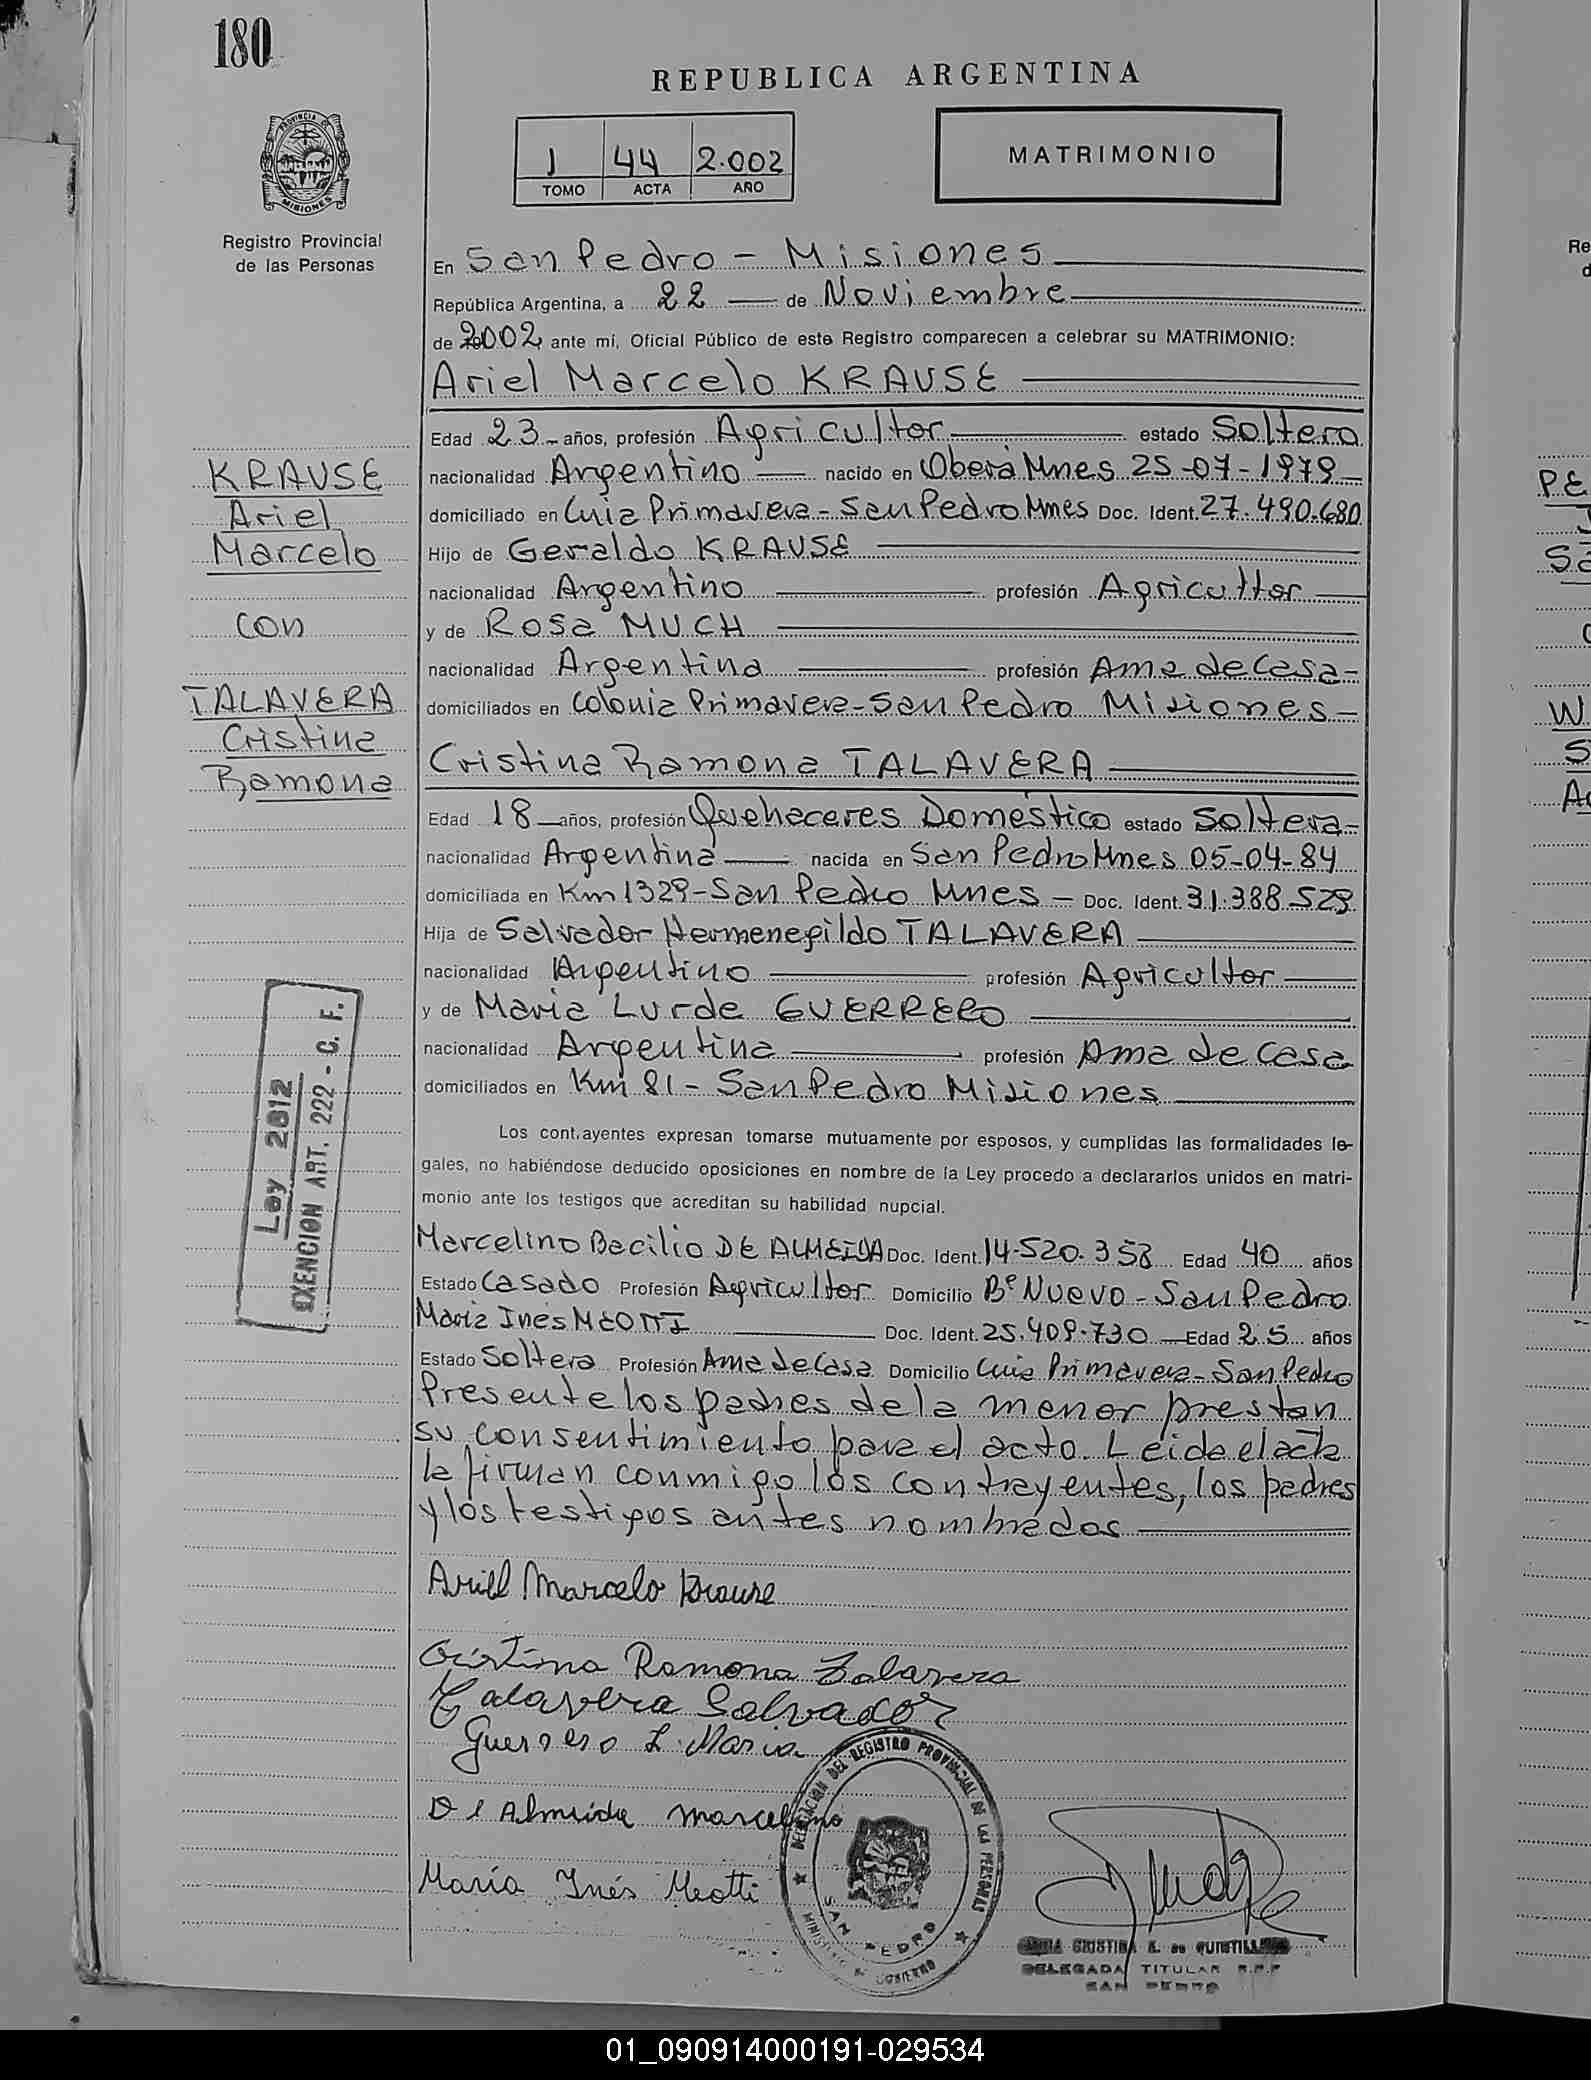 180
REPUBLICA ARGENTINA
PROVINCIA DE MISIONES
Registro Provincial
de las Personas
1 44 2.002
TOMO ACTA AÑO
MATRIMONIO
En San Pedro - Misiones
República Argentina, a 22 de Noviembre
de 2002 ante mí, Oficial Público de este Registro comparecen a celebrar su MATRIMONIO:
Ariel Marcelo KRAUSE
Edad 23 años, profesión Agricultor estado Soltero
nacionalidad Argentino nacido en Oberá Mnes 25-07-1979
domiciliado en Cnia Primavera - San Pedro Mnes Doc. Ident. 27.490.680
Hijo de Geraldo KRAUSE
nacionalidad Argentino profesión Agricultor
y de Rosa MUCH
nacionalidad Argentina profesión Ama de Casa
domiciliados en Colonia Primavera - San Pedro Misiones
Cristina Ramona TALAVERA
Edad 18 años, profesión Quehaceres Doméstico estado Soltera
nacionalidad Argentina nacida en San Pedro Mnes 05-04-84
domiciliada en Km 1329 - San Pedro Mnes Doc. Ident. 31.388.529
Hija de Salvador Hermenegildo TALAVERA
nacionalidad Argentino profesión Agricultor
y de Maria Lurde GUERRERO
nacionalidad Argentina profesión Ama de Casa
domiciliados en Km 81 - San Pedro Misiones
Los contrayentes expresan tomarse mutuamente por esposos, y cumplidas las formalidades le-
gales, no habiéndose deducido oposiciones en nombre de la Ley procedo a declararlos unidos en matri-
monio ante los testigos que acreditan su habilidad nupcial.
Marcelino Bacilio DE ALMEIDA Doc. Ident. 14.520.358 Edad 40 años
Estado Casado Profesión Agricultor Domicilio Bº Nuevo - San Pedro
Maria Inés MEOTTI Doc. Ident. 25.409.730 Edad 25 años
Estado Soltera Profesión Ama de Casa Domicilio Cnia Primavera - San Pedro
Presente los padres de la menor prestan
su consentimiento para el acto. Leida el acta
la firman conmigo los contrayentes, los padres
y los testigos antes nombrados
Ariel Marcelo Krause
Cristina Ramona Talavera
Talavera Salvador
Guerrero L. Maria
De Almeida Marcelino
María Inés Meotti
KRAUSE
Ariel
Marcelo
con
TALAVERA
Cristina
Ramona
Ley 2812
EXENCION ART. 222 - C. F.
DELEGACION DEL REGISTRO PROVINCIAL DE LAS PERSONAS
SAN PEDRO
MINISTERIO DE GOBIERNO
CRISTINA E. de QUINTILLAN
DELEGADA TITULAR R.P.P
SAN PEDRO
01_090914000191-029534